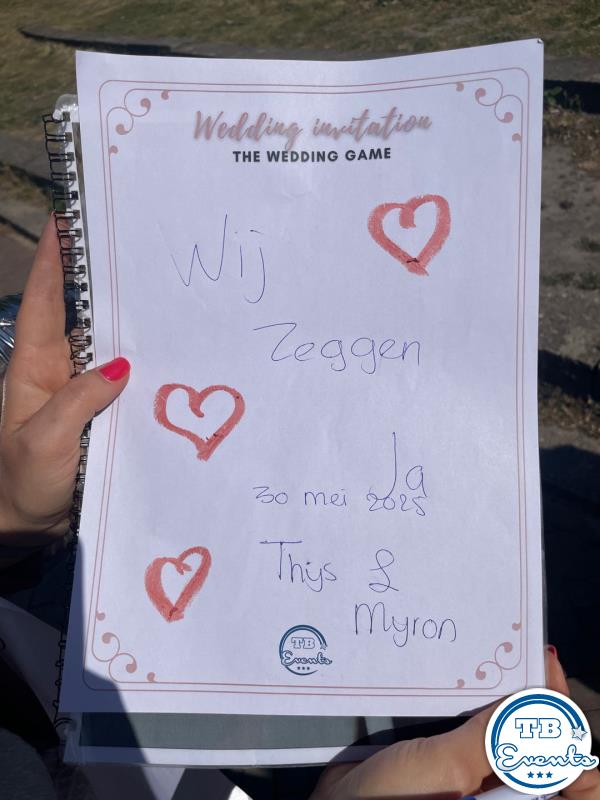 Wedding invitation
THE WEDDING GAME
Wij
Zeggen
Ja
30 mei 2025
Thijs &
Myron
TB
Events
TB
Events